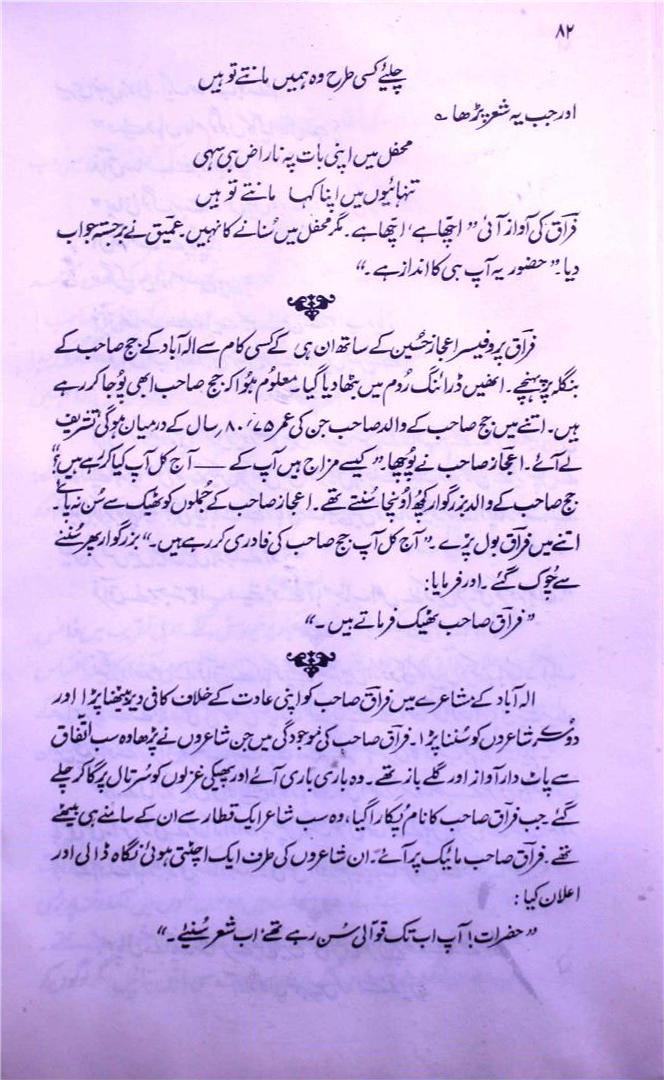 ۸۲
چلیے کسی طرح وہ ہمیں مانتے تو ہیں
اور جب یہ شعر پڑھا ؎
محفل میں اپنی بات پہ ناراض ہی سہی
تنہائیوں میں اپنا کہا مانتے تو ہیں
فراق کی آواز آئی ”اچھا ہے، اچھا ہے۔ مگر محفل میں سُنانے کا نہیں۔ عمیق نے برجستہ جواب
دیا۔ ”حضور یہ آپ ہی کا انداز ہے۔“
فراق پروفیسر اعجاز حسین کے ساتھ ان ہی کے کسی کام سے الہ آباد کے جج صاحب کے
بنگلہ پر پہنچے۔ انھیں ڈرائنگ رُوم میں بٹھا دیا گیا۔ معلوم ہوا کہ جج صاحب ابھی پُوجا کر رہے
ہیں۔ اتنے میں جج صاحب کے والد صاحب جن کی عمر ۷۵/۸۰ سال کے درمیان ہوگی تشریف
لے آئے۔ اعجاز صاحب نے پُوچھا۔ ”کیسے مزاج ہیں آپ کے —— آج کل آپ کیا کر رہے ہیں؟“
جج صاحب کے والد بزرگوار کچھ اُونچا سُنتے تھے۔ اعجاز صاحب کے جُملوں کو ٹھیک سے سُن نہ پائے۔
اتنے میں فراق بول پڑے۔ ”آج کل آپ جج صاحب کی فادری کر رہے ہیں۔“ بزرگوار پھر سُننے
سے چُوک گئے۔ اور فرمایا:
”فراق صاحب ٹھیک فرماتے ہیں۔“
الہ آباد کے مشاعرے میں فراق صاحب کو اپنی عادت کے خلاف کافی دیر بیٹھنا پڑا اور
دوسرے شاعروں کو سُننا پڑا۔ فراق صاحب کی موجودگی میں جن شاعروں نے پڑھا وہ سب اتفاق
سے پاٹ دار آواز اور گلے باز تھے۔ وہ باری باری آئے اور پھیکی غزلوں کو سُر تال پر گا کر چلے
گئے۔ جب فراق صاحب کا نام پُکارا گیا، وہ سب شاعر ایک قطار سے ان کے سامنے ہی بیٹھے
تھے۔ فراق صاحب مائیک پر آئے۔ ان شاعروں کی طرف ایک اچٹتی ہوئی نگاہ ڈالی اور
اعلان کیا:
”حضرات! آپ اب تک قوالی سُن رہے تھے، اب شعر سُنیئے۔“